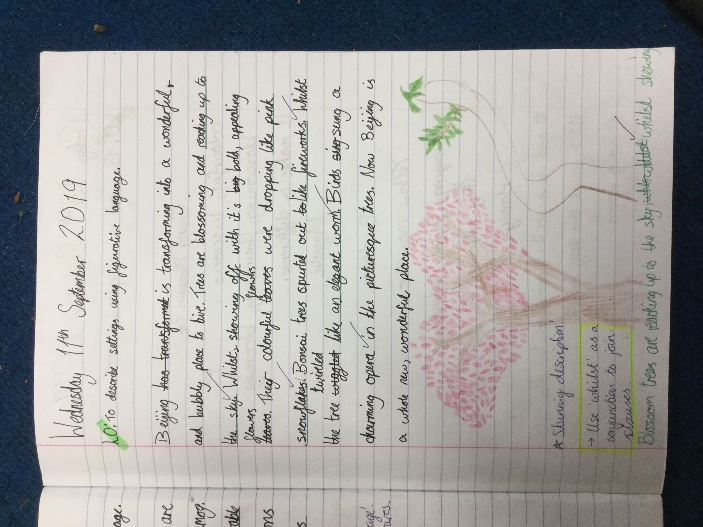 Wednesday 11th September 2019
LO: To describe settings using figurative language.
Beijing has transformat is transforming into a wonderful
and bubbly place to live. Trees are blossoming and reading up to
the sky. Whilst, showing off with it's big bold, appealing
flowers flowers
leaves. Their colourful leaves were dropping like pink
snowflakes. Bonsai trees spurted out to like fireworks. Whilst
twirled
the tree wiggled like an elegant worm. Birds sing sung a
charming opera in the picturesque trees. Now Beijing is
a whole new, wonderful place.
Stunning description!
→ Use whilst as a
conjunction to join
clauses.
Blossom trees are reaching up to the sky whilst showing
age.
are
mop.
able
ons
s
age.